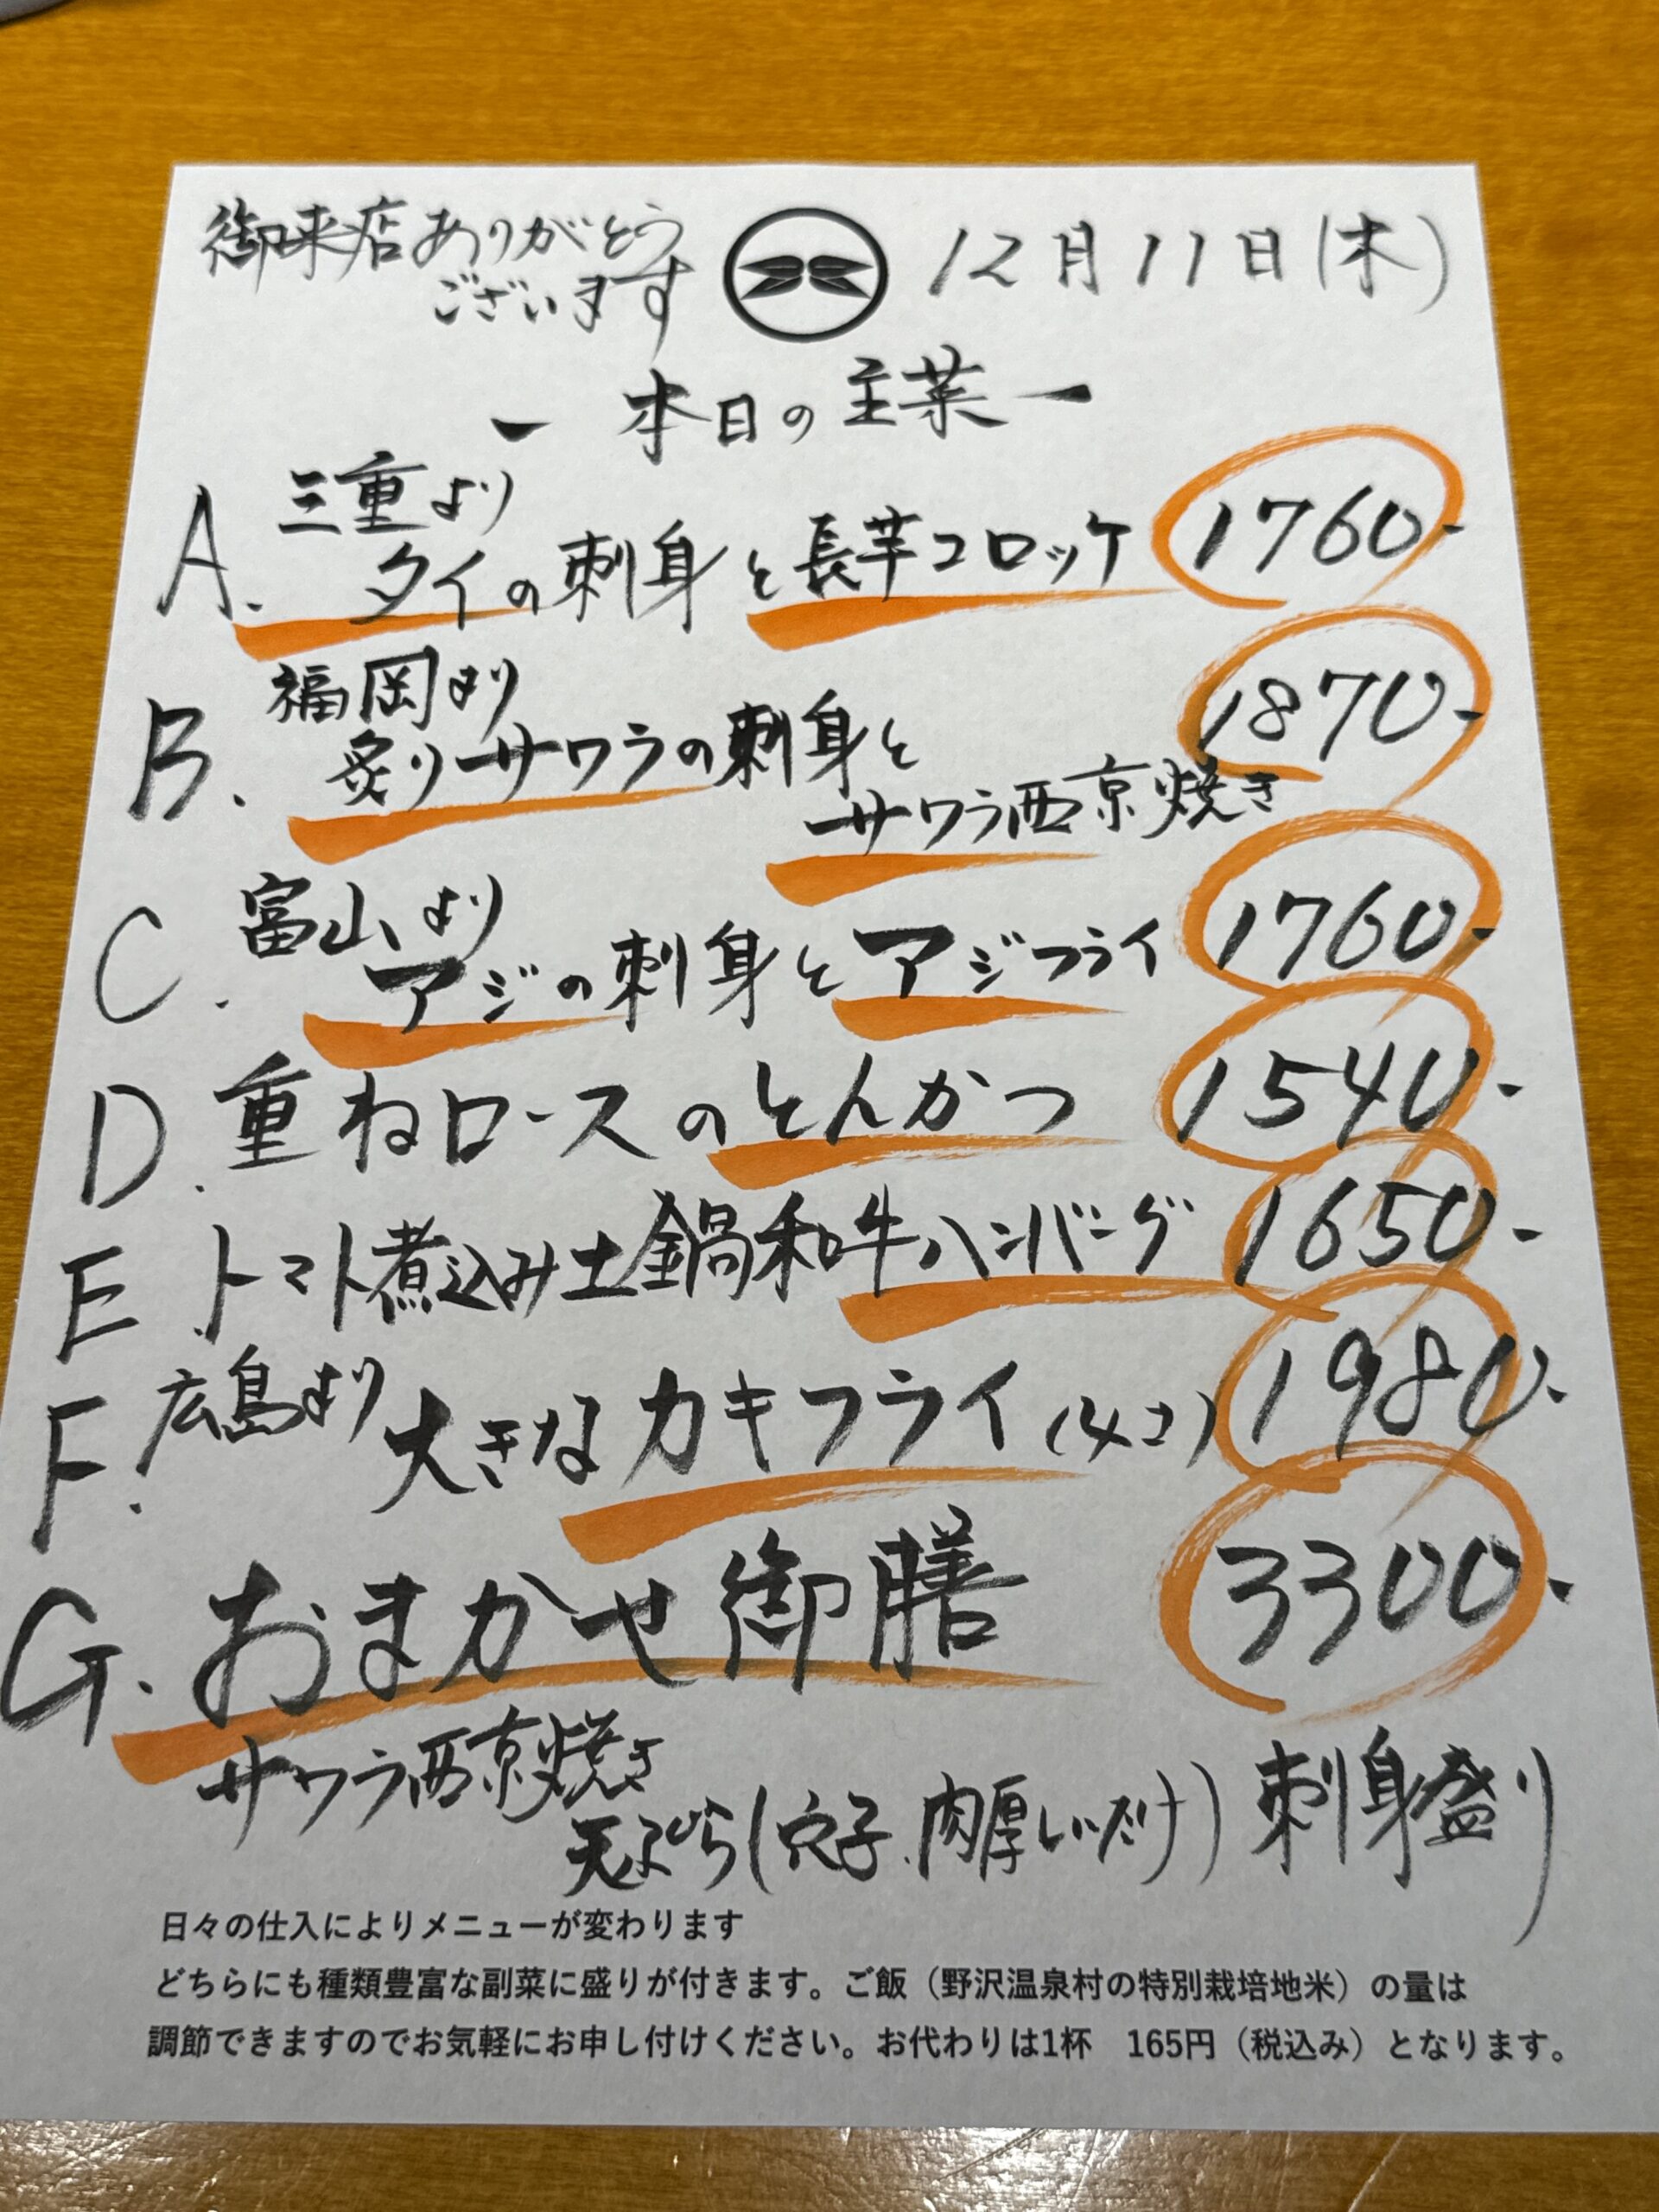 御来店ありがとう
ございます
12月11日(木)
ー 本日の主菜 ー
A. 三重より
タイの刺身と長芋コロッケ 1760-
B. 福岡より
炙りサワラの刺身と 1870-
サワラ西京焼き
C. 富山より
アジの刺身とアジフライ 1760-
D. 重ねロースのとんかつ 1540-
E. トマト煮込み土鍋和牛ハンバーグ 1650-
F. 広島より 大きなカキフライ(4コ) 1980-
G. おまかせ御膳 3300-
サワラ西京焼き
天ぷら(穴子、肉厚しいたけ) 刺身盛り
日々の仕入によりメニューが変わります
どちらにも種類豊富な副菜に盛りが付きます。ご飯（野沢温泉村の特別栽培地米）の量は
調節できますのでお気軽にお申し付けください。お代わりは1杯　165円（税込み）となります。